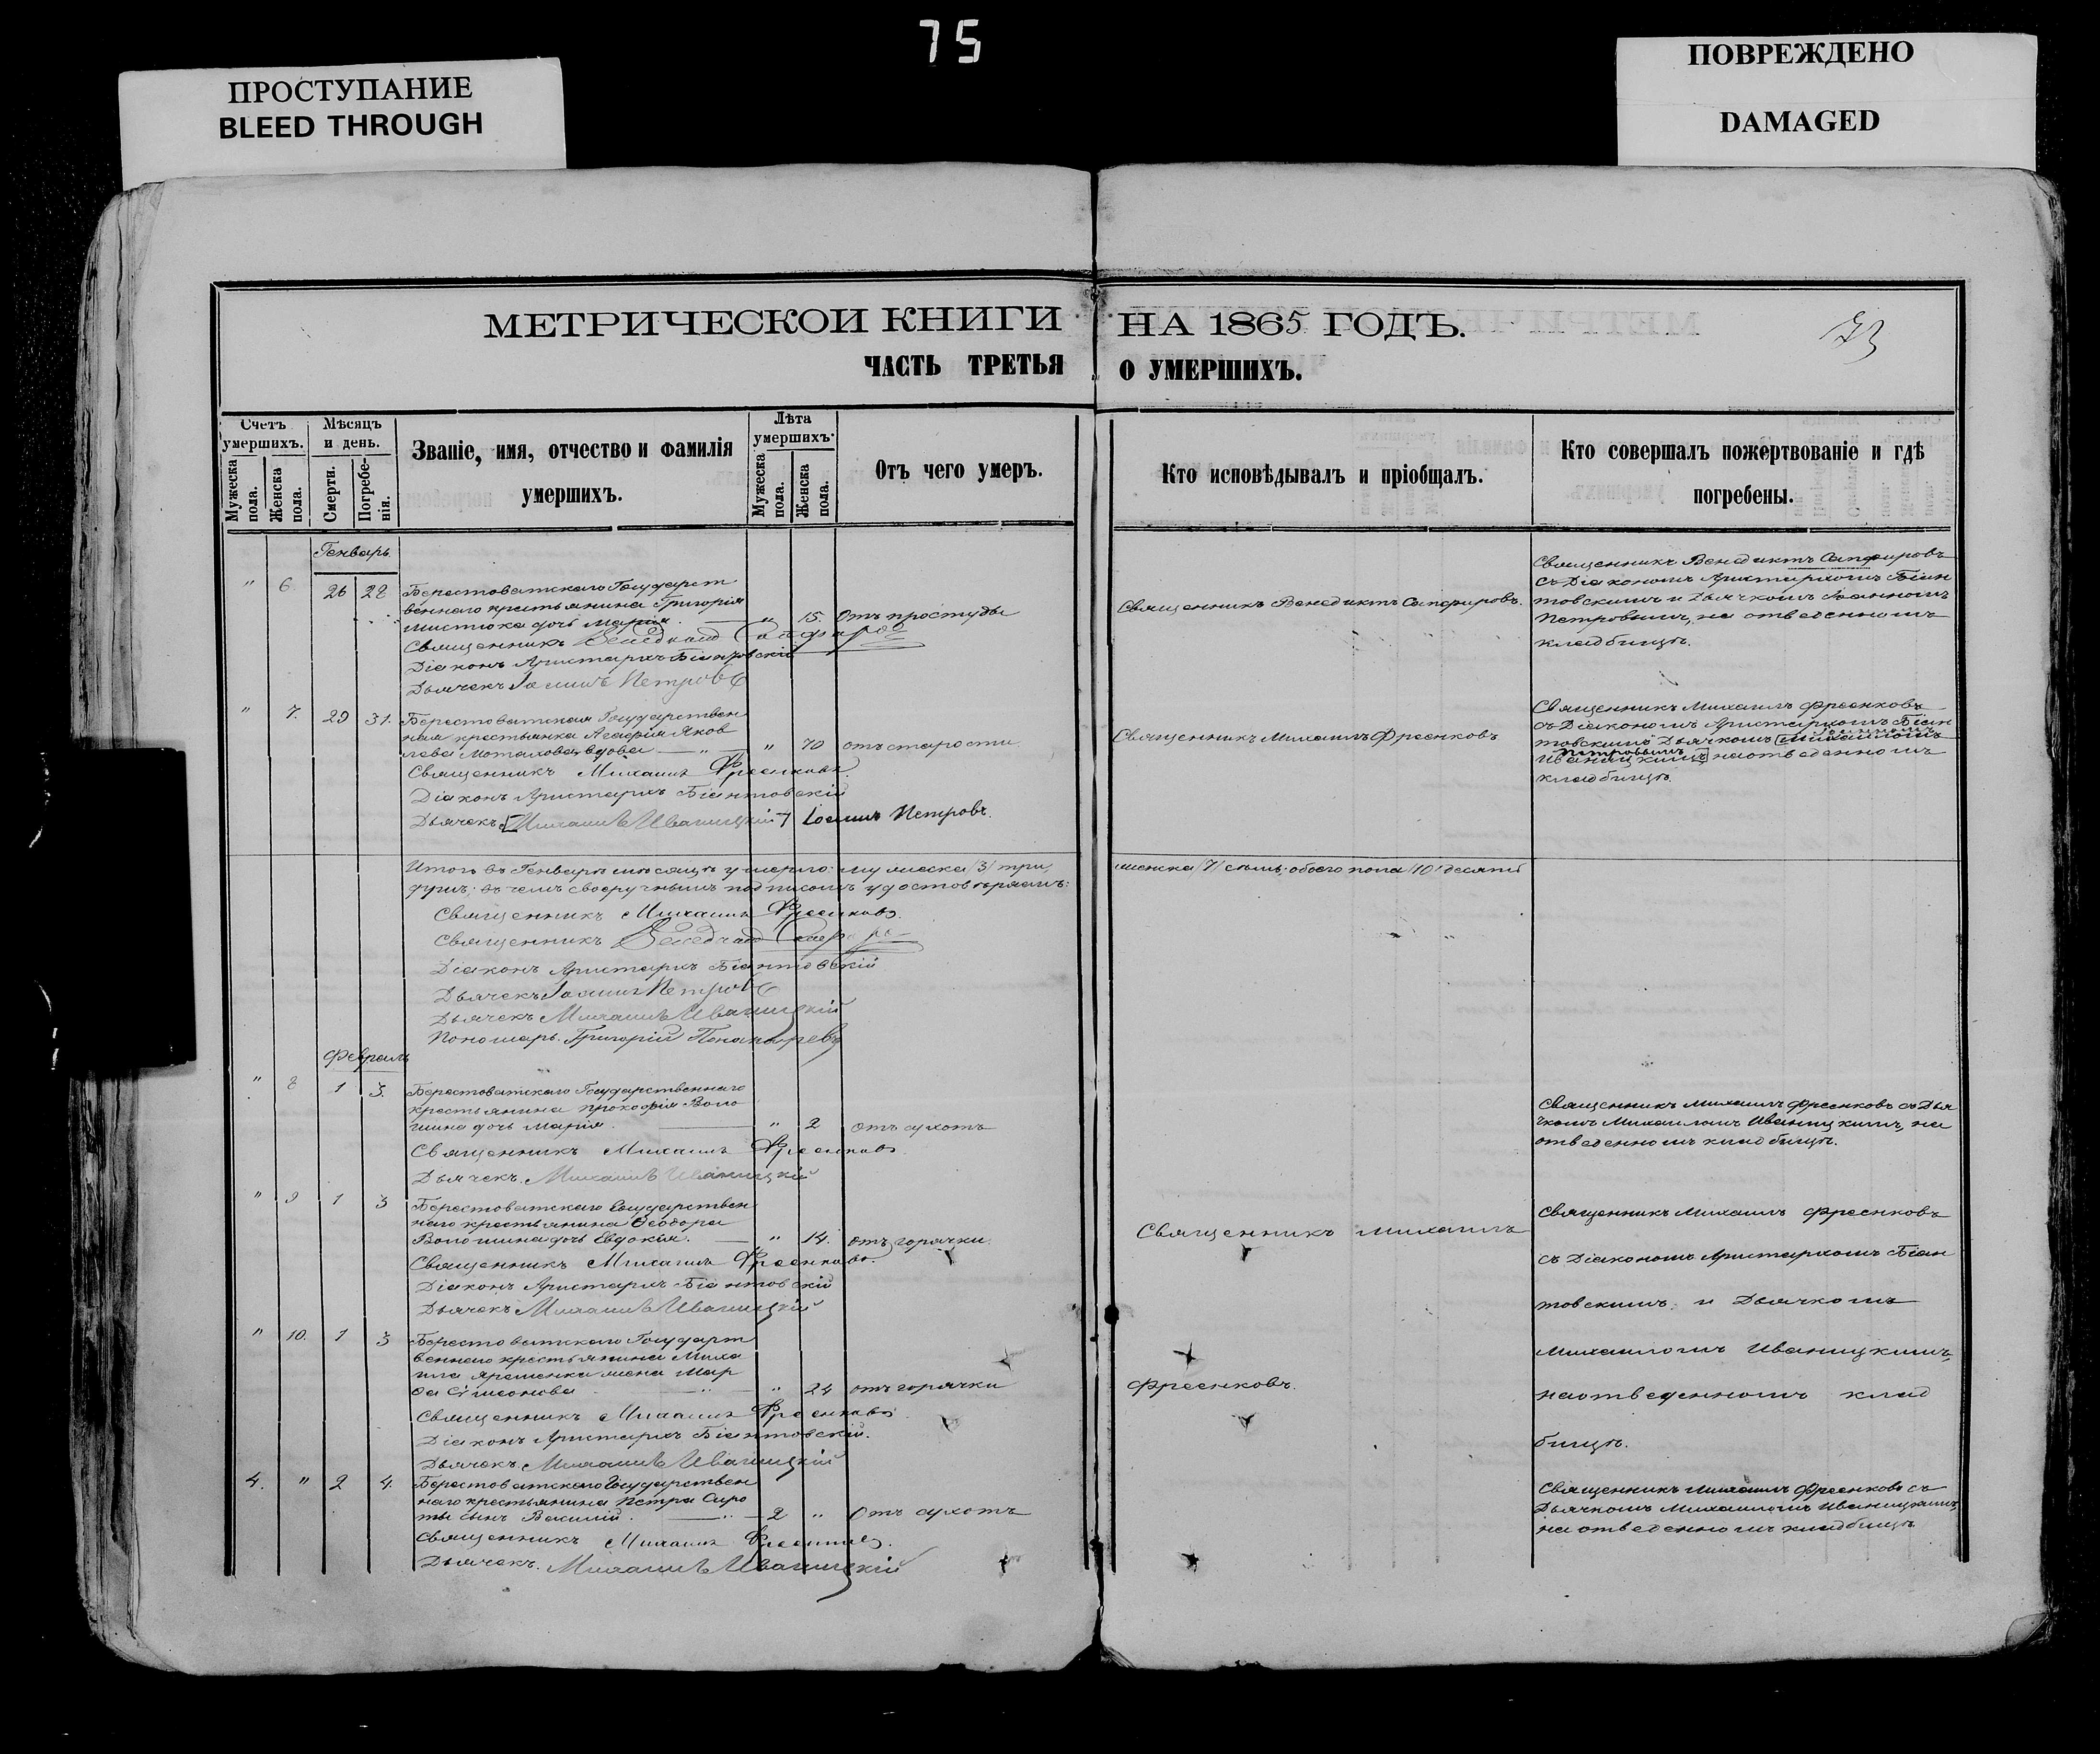 75
ПРОСТУПАНИЕ
BLEED THROUGH
ПОВРЕЖДЕНО
DAMAGED
МЕТРИЧЕСКОЙ КНИГИ НА 1865 ГОДЪ.
73
ЧАСТЬ ТРЕТЬЯ О УМЕРШИХЪ.
Счетъ умершихъ.
Мужеска пола.
Женска пола.
Мѣсяцъ и день.
Смерти.
Погребенія.
Званіе, имя, отчество и фамилія
умершихъ.
Лѣта умершихъ.
Мужеска пола.
Женска пола.
Отъ чего умеръ.
Кто исповѣдывалъ и пріобщалъ.
Кто совершалъ пожертвованіе и гдѣ
погребены.
Генварь.
" 6 26 28 Берестоватскаго Государст
веннаго крестьянина Григорія
дочь Марія. " 15. Отъ простуды
Священникъ Венедиктъ Сапфировъ
Діаконъ Аристархъ Біантовскій
Дьячекъ Іоаннъ Петровъ
Священникъ Венедиктъ Сапфировъ.
Священникъ Венедиктъ Сапфировъ
съ Діакономъ Аристархомъ Біан
товскимъ и Дьячкомъ Іоанномъ
Петровымъ, на отведенномъ
кладбищѣ.
" 7. 29 31. Берестоватская Государствен
ная крестьянка Агафія Яков
лева вдова " 70 отъ старости
Священникъ Михаилъ Фреенковъ.
Діаконъ Аристархъ Біантовскій
Дьячекъ [Михаилъ Иваницкій] Іоаннъ Петровъ.
Священникъ Михаилъ Фреенковъ
Священникъ Михаилъ Фреенковъ
съ Діакономъ Аристархомъ Біан
товскимъ Дьячкомъ [Михаиломъ Іоанномъ
Иваницкимъ] Петровымъ на отведенномъ
кладбищѣ.
Итого въ Генварѣ мѣсяцѣ умерло: мужеска /3/ три, женска /7/ семь, обоего пола /10/ десять
душъ; въ чемъ своеручнымъ подписомъ удостовѣряемъ:
Священникъ Михаилъ Фреенковъ.
Священникъ Венедиктъ Сапфировъ
Діаконъ Аристархъ Біантовскій
Дьячекъ Іоаннъ Петровъ
Дьячекъ Михаилъ Иваницкій
Пономарь Григорій
Февраль
" 8 1 3. Берестоватскаго Государственнаго
крестьянина Прокофія Воло
шина дочь Марія. " 2 отъ сухотъ
Священникъ Михаилъ Фреенковъ
Дьячекъ Михаилъ Иваницкій
Священникъ Михаилъ Фреенковъ съ Дья
чкомъ Михаиломъ Иваницкимъ, на
отведенномъ кладбищѣ.
" 9 1 3 Берестоватскаго Государствен
наго крестьянина Ѳеодора
Волошина дочь Евдокія. " 14. отъ горячки.
Священникъ Михаилъ Фреенковъ.
Діаконъ Аристархъ Біантовскій
Дьячекъ Михаилъ Иваницкій
Священникъ Михаилъ
Священникъ Михаилъ Фреенковъ
съ Діакономъ Аристархомъ Біан
товскимъ и Дьячкомъ
" 10. 1 3 Берестоватскаго Государст
веннаго крестьянина Миха
ила Яременка жена Мар
ѳа Симеонова " 24 отъ горячки
Священникъ Михаилъ Фреенковъ
Діаконъ Аристархъ Біантовскій.
Дьячекъ Михаилъ Иваницкій
Фреенковъ.
Михаиломъ Иваницкимъ,
на отведенномъ клад
бищѣ.
4. " 2 4. Берестоватскаго Государствен
наго крестьянина Петра Сиро
ты сынъ Василій. 2 " Отъ сухотъ
Священникъ Михаилъ Фреенковъ.
Дьячекъ Михаилъ Иваницкій
Священникъ Михаилъ Фреенковъ съ
Дьячкомъ Михаиломъ Иваницкимъ,
на отведенномъ кладбищѣ